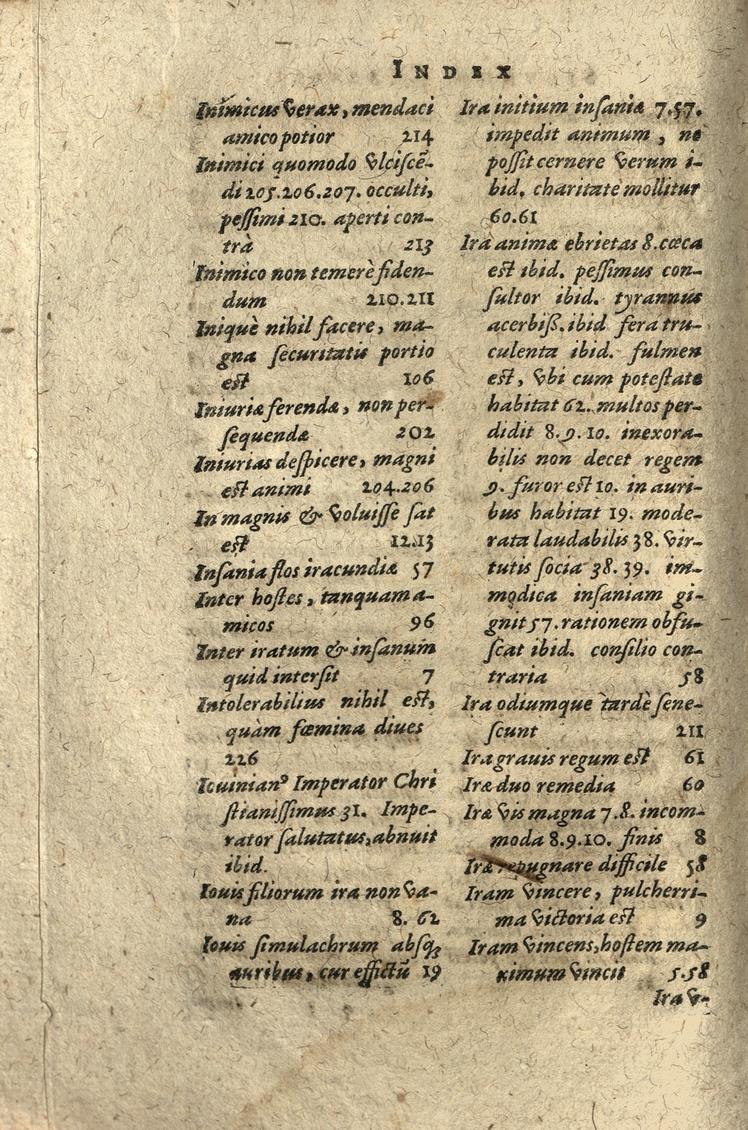 INDEX
Inimicus verax, mendaci
amico potior 214
Inimici quomodo vlciscē-
di 205.206.207. occulti,
pessimi 210. aperti con-
trà 213
Inimico non temerè fiden-
dum 210.211
Iniquè nihil facere, ma-
gna securitatis portio
est 106
Iniuriæ ferendæ, non per-
sequendæ 202
Iniurias despicere, magni
est animi 204.206
In magnis & voluisse sat
est 12.13
Insania flos iracundiæ 57
Inter hostes, tanquam a-
micos 96
Inter iratum & insanum
quid intersit 7
Intolerabilius nihil est,
quàm fœmina diues
226
Iouinianꝰ Imperator Chri
stianissimus 31. Impe-
rator salutatus, abnuit
ibid.
Iouis filiorum ira non va-
na 8. 62
Iouis simulachrum absqꝫ
auribus, cur effictū 19
Ira initium insaniæ 7.57.
impedit animum, ne
possit cernere verum i-
bid. charitate mollitur
60.61
Ira animæ ebrietas 8.cœca
est ibid. pessimus con-
sultor ibid. tyrannus
acerbiß.ibid fera tru-
culenta ibid. fulmen
est, vbi cum potestate
habitat 62. multos per-
didit 8.9.10. inexora-
bilis non decet regem
9. furor est 10. in auri-
bus habitat 19. mode-
rata laudabilis 38. vir-
tutis socia 38. 39. im-
modica insaniam gi-
gnit 57. rationem obfu-
scat ibid. consilio con-
traria 58
Ira odiumque tardè sene-
scunt 211
Ira grauis regum est 61
Iræ duo remedia 60
Iræ vis magna 7.8. incom-
moda 8.9.10. finis 8
Iræ repugnare difficile 58
Iram vincere, pulcherri-
ma victoria est 9
Iram vincens, hostem ma-
ximum vincit 5.58
Ira v-